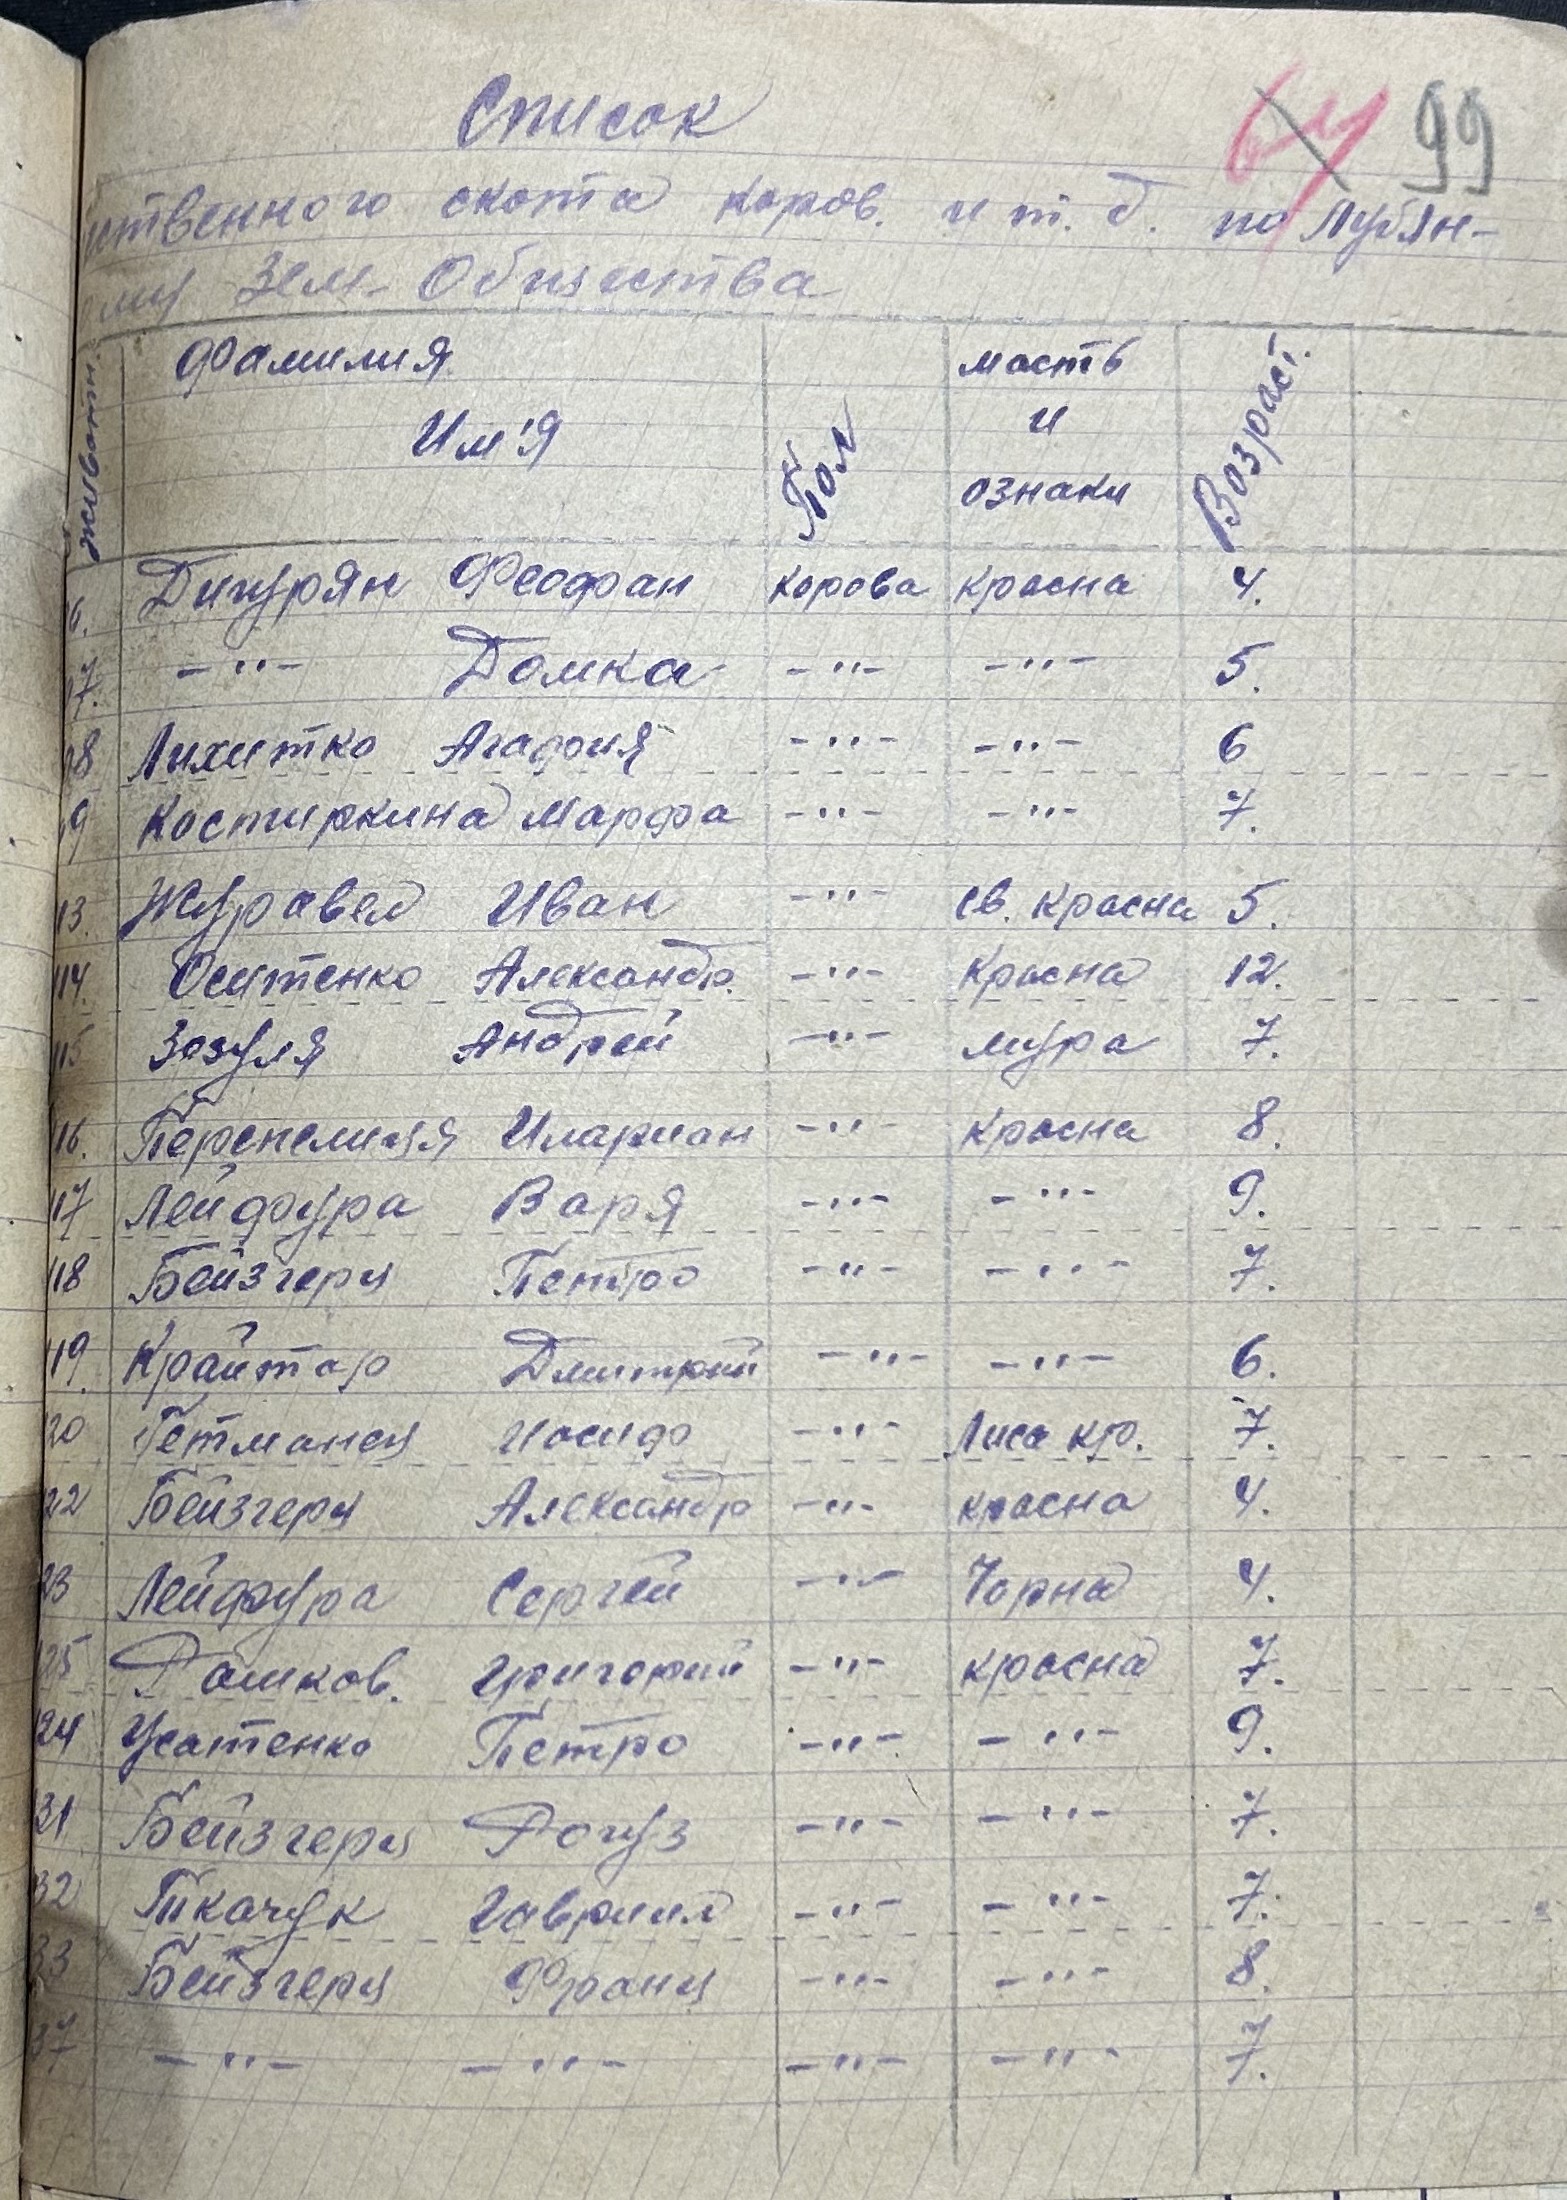 Список
64 99
ственного скота коров. и т. д. по Лубян-
му Зем. Общества
животн. Фамилия Им'я Пол масть и ознаки Возраст.
6. Дигурян Феофан корова красна 4.
17. -"- Домка -"- -"- 5.
18 Лихитко Агафия -"- -"- 6
19 Костиркина Марфа -"- -"- 7.
13. Журавел Иван -"- св. красна 5.
114. Оситенко Александр. -"- Красна 12.
115 Зозуля Андрей -"- мура 7.
116. Перепелиця Иларион -"- красна 8.
117 Лейфура Варя -"- -"- 9.
118 Бейзгерц Петро -"- -"- 7.
119. Крайтор Дмитрий -"- -"- 6.
120 Гетманец Иосиф -"- Лиса кр. 7.
122 Бейзгерц Александр -"- красна 4.
23 Лейфура Сергей -"- Чорна 4.
125 Рашков. Григорий -"- красна 7.
124 Усатенко Петро -"- -"- 9.
31 Бейзгерц Рогуз -"- -"- 7.
32 Ткачук Гавриил -"- -"- 7.
33 Бейзгерц Франц -"- -"- 8.
37 -"- -"- -"- -"- 7.